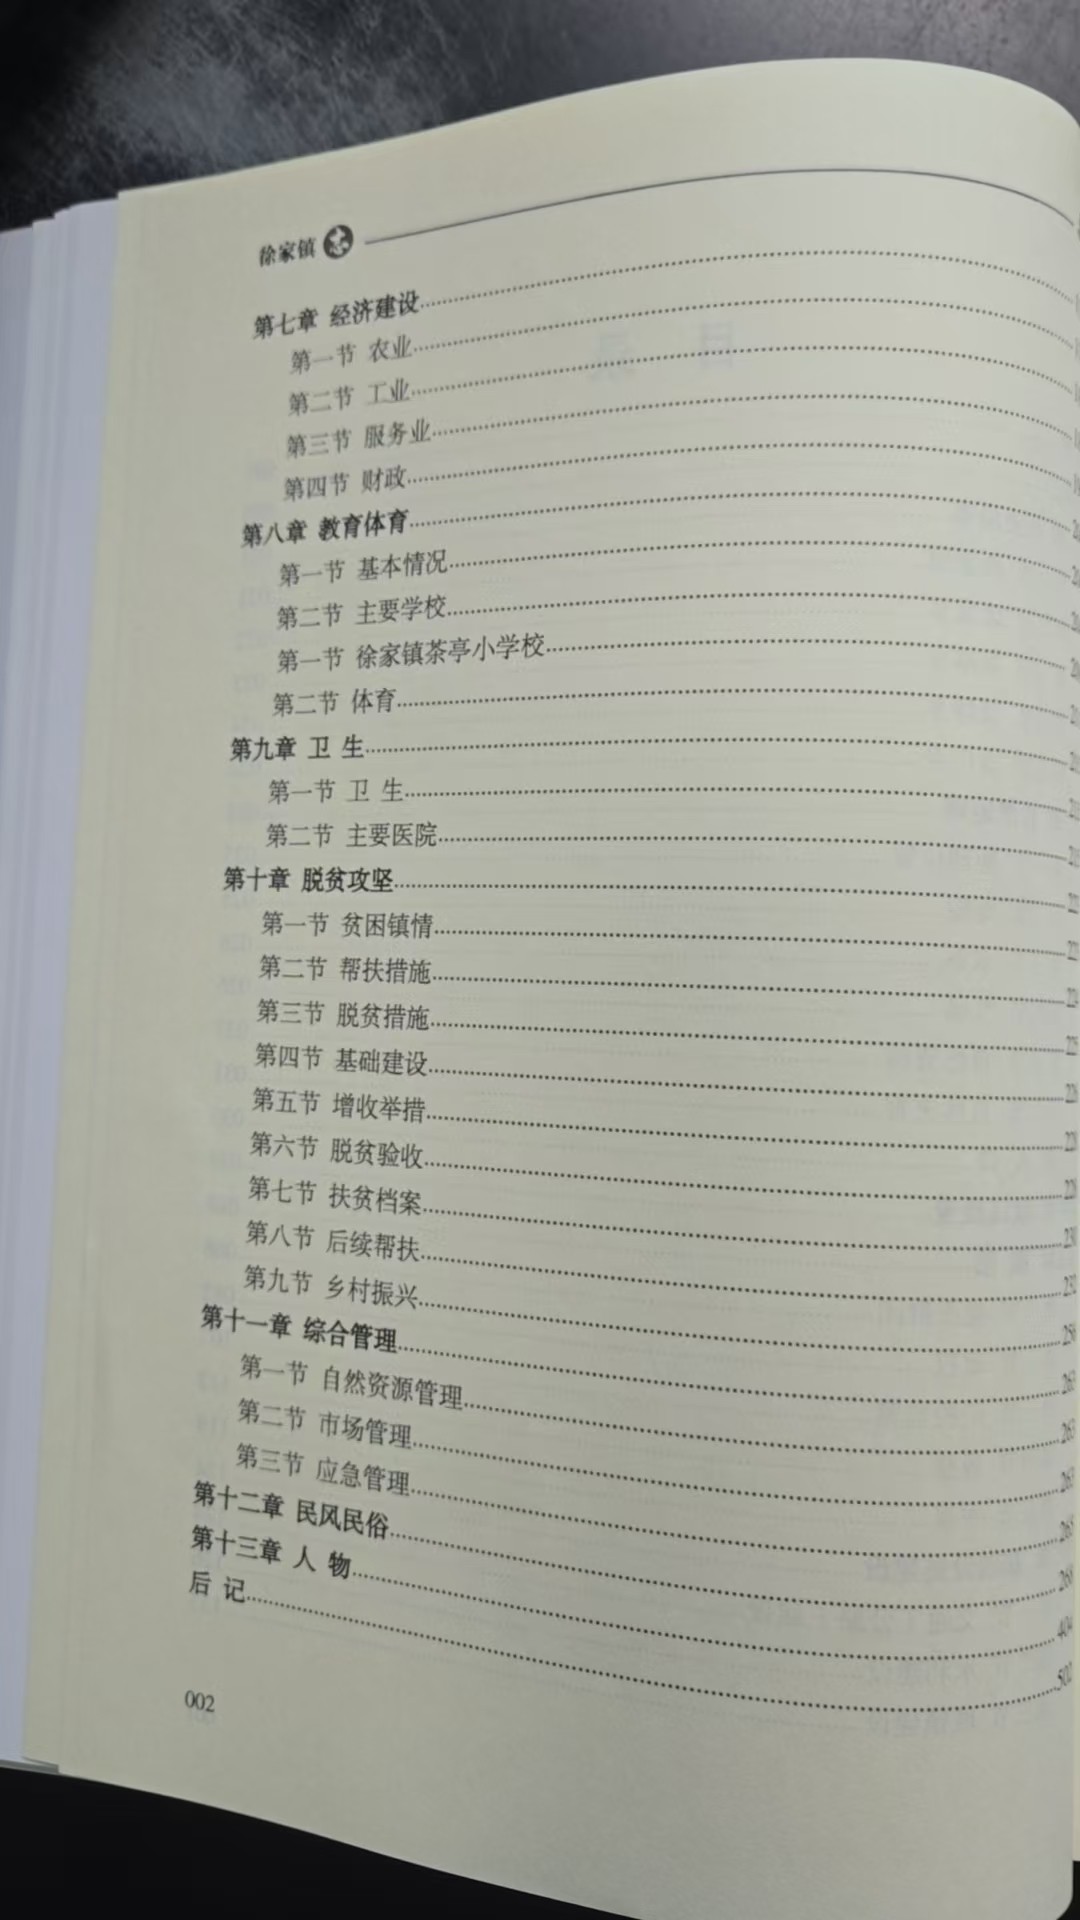 徐家镇 志
第七章 经济建设
第一节 农业
第二节 工业
第三节 服务业
第四节 财政
第八章 教育体育
第一节 基本情况
第二节 主要学校
第一节 徐家镇茶亭小学校
第二节 体育
第九章 卫 生
第一节 卫 生
第二节 主要医院
第十章 脱贫攻坚
第一节 贫困镇情
第二节 帮扶措施 224
第三节 脱贫措施 225
第四节 基础建设 226
第五节 增收举措 228
第六节 脱贫验收
第七节 扶贫档案 230
第八节 后续帮扶 232
第九节 乡村振兴 256
第十一章 综合管理 263
第一节 自然资源管理 263
第二节 市场管理 263
第三节 应急管理 265
第十二章 民风民俗 268
第十三章 人 物 404
后 记 502
002